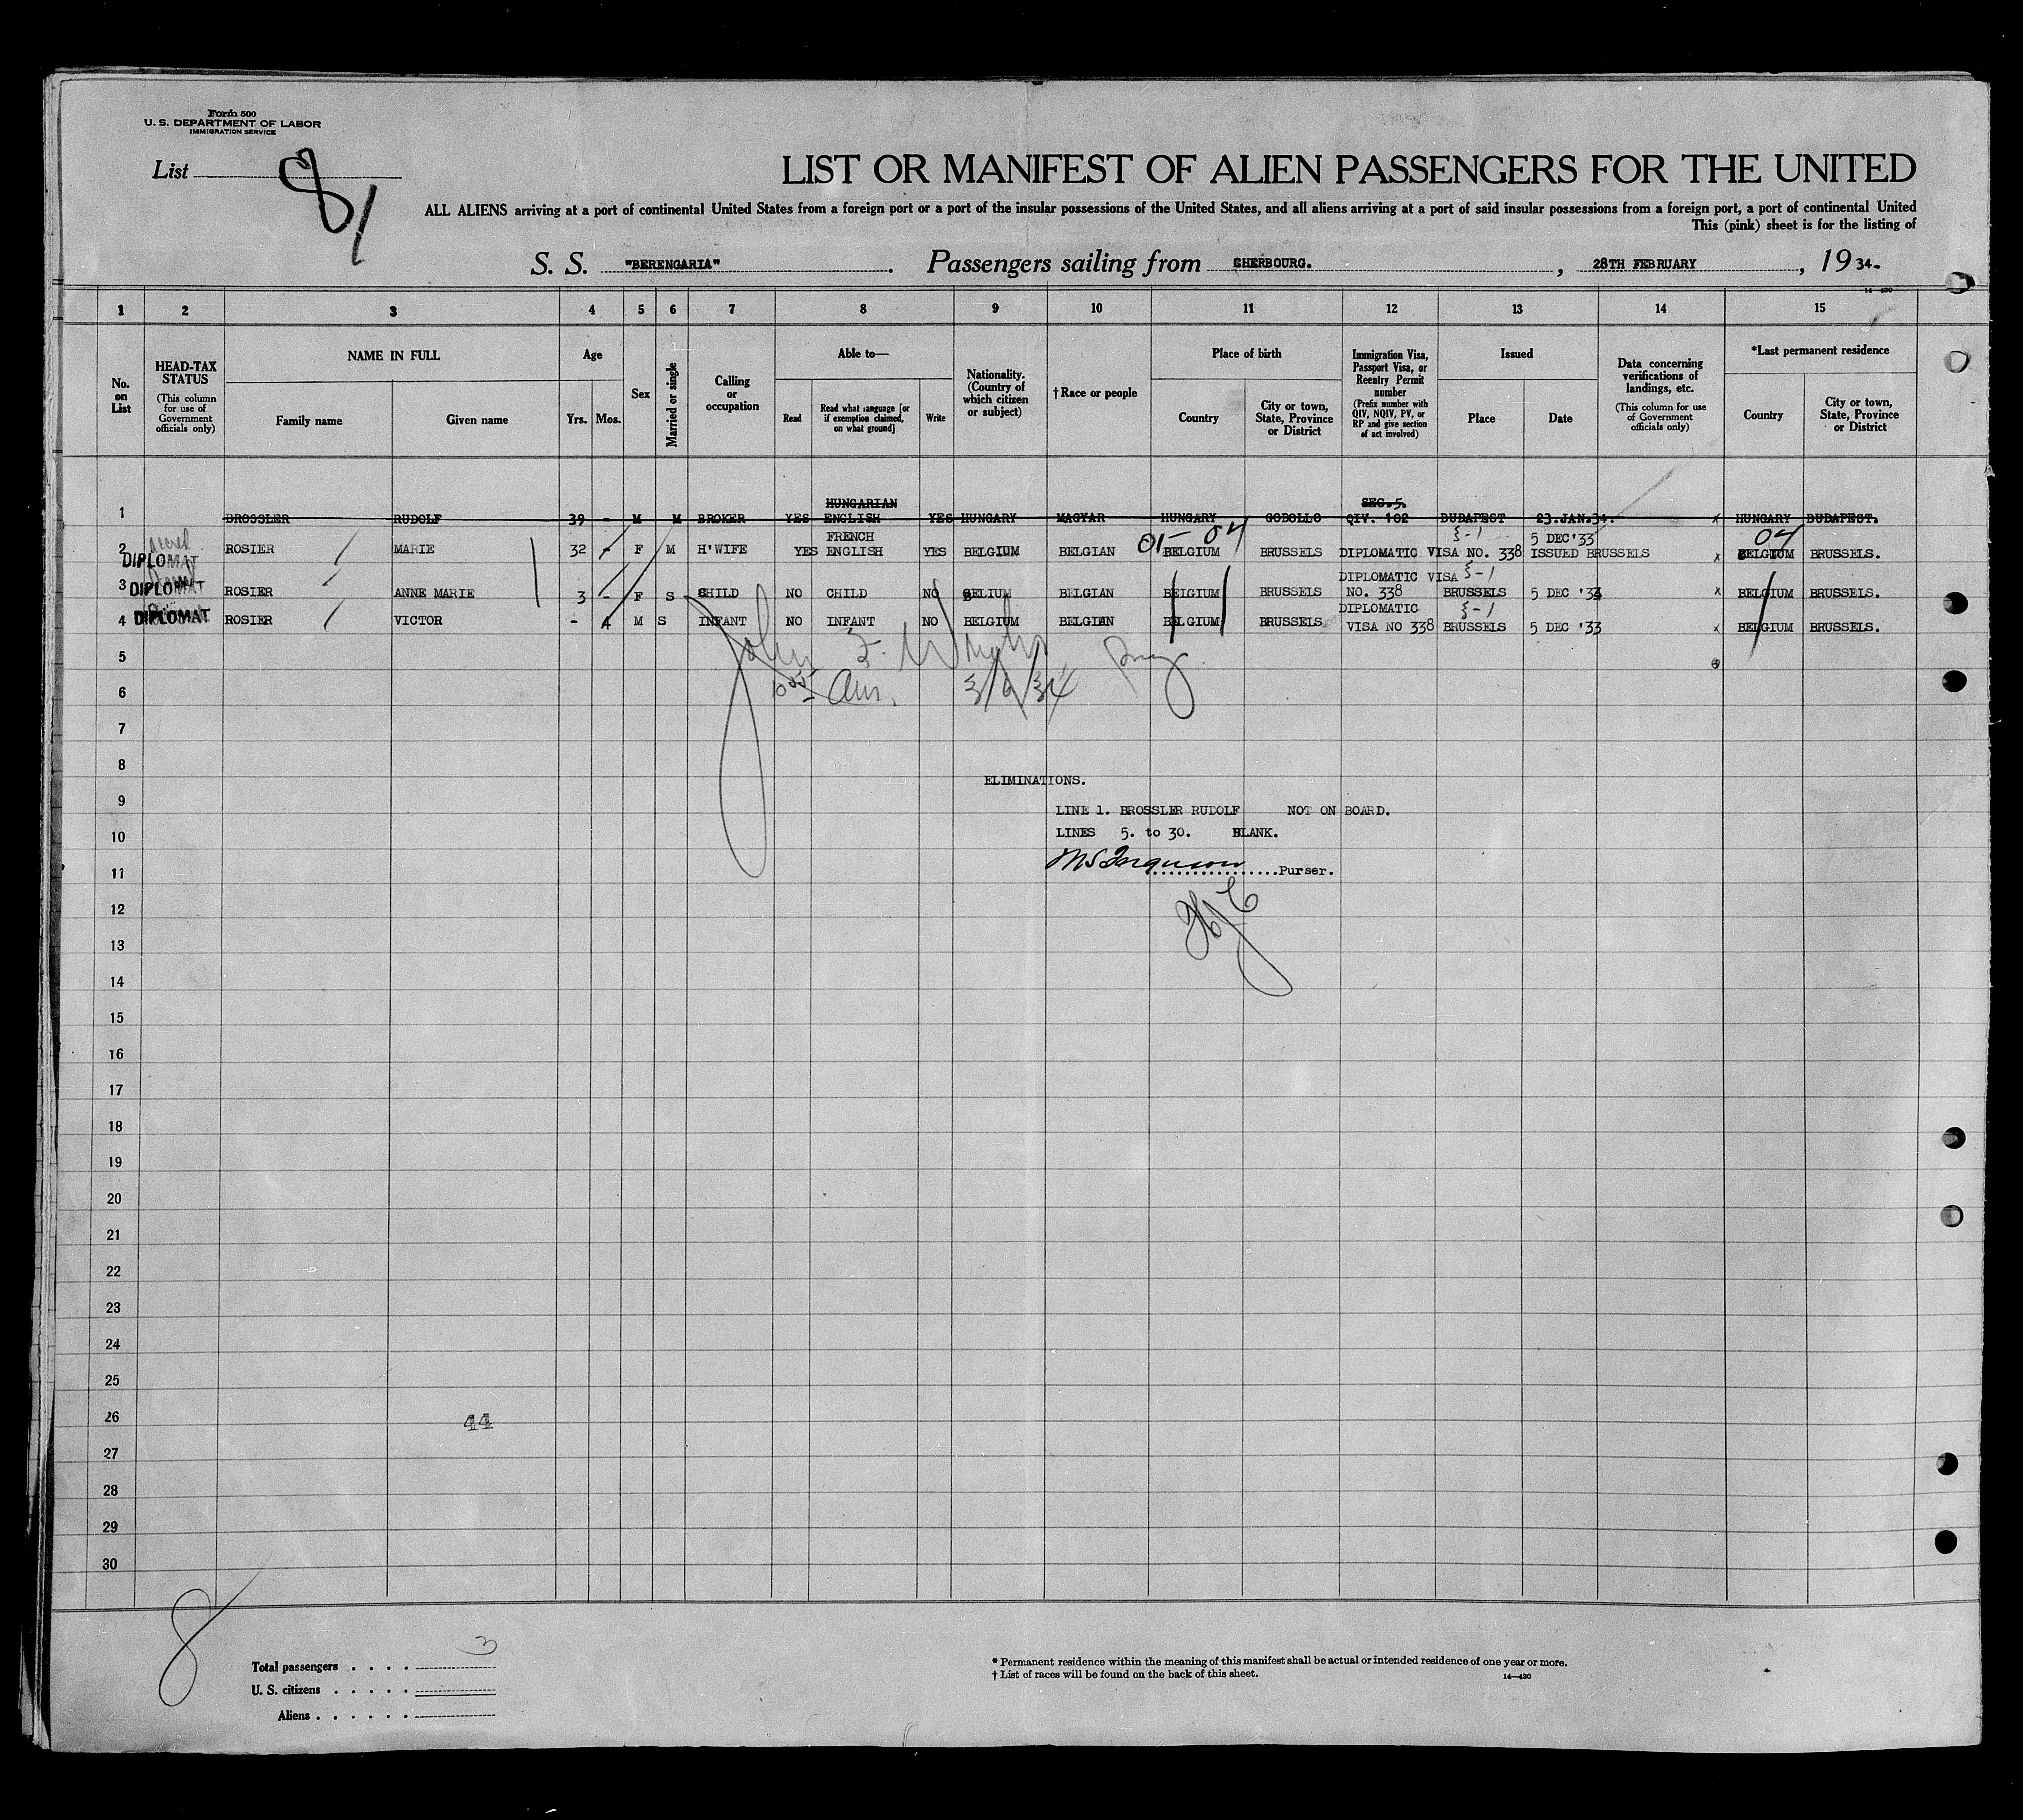 Form 500
U. S. DEPARTMENT OF LABOR
IMMIGRATION SERVICE
List 81
LIST OR MANIFEST OF ALIEN PASSENGERS FOR THE UNITED
ALL ALIENS arriving at a port of continental United States from a foreign port or a port of the insular possessions of the United States, and all aliens arriving at a port of said insular possessions from a foreign port, a port of continental United
This (pink) sheet is for the listing of
S. S. "BERENGARIA". Passengers sailing from CHERBOURG. , 28TH FEBRUARY , 19 34.
14—430
1 2 3 4 5 6 7 8 9 10 11 12 13 14 15
No. on List
HEAD-TAX STATUS
(This column for use of Government officials only)
NAME IN FULL
Family name Given name
Age
Yrs. Mos.
Sex
Married or single
Calling or occupation
Able to—
Read Read what language [or if exemption claimed, on what ground] Write
Nationality. (Country of which citizen or subject)
†Race or people
Place of birth
Country City or town, State, Province or District
Immigration Visa, Passport Visa, or Reentry Permit number
(Prefix number with QIV, NQIV, PV, or RP and give section of act involved)
Issued
Place Date
Data concerning verifications of landings, etc.
(This column for use of Government officials only)
*Last permanent residence
Country City or town, State, Province or District
HUNGARIAN SEC. 5.
1 BROSSLER RUDOLF 39 - M M BROKER YES ENGLISH YES HUNGARY MAGYAR HUNGARY GODOLLO QIV. 102 BUDAPEST 23.JAN.34. x HUNGARY BUDAPEST.
FRENCH 01- 04 3-1 5 DEC '33 04
2 DIPLOMAT ROSIER MARIE 32 - F M H'WIFE YES ENGLISH YES BELGIUM BELGIAN BELGIUM BRUSSELS DIPLOMATIC VISA NO. 338 ISSUED BRUSSELS x BELGIUM BRUSSELS.
DIPLOMATIC VISA 3-1
3 DIPLOMAT ROSIER ANNE MARIE 3 - F S CHILD NO CHILD NO BELIUM BELGIAN BELGIUM BRUSSELS NO. 338 BRUSSELS 5 DEC '33 x BELGIUM BRUSSELS.
DIPLOMATIC 3-1
4 DIPLOMAT ROSIER VICTOR - 4 M S INFANT NO INFANT NO BELGIUM BELGIAN BELGIUM BRUSSELS VISA NO 338 BRUSSELS 5 DEC '33 x BELGIUM BRUSSELS.
5 John
6 3/6/34
7
8 ELIMINATIONS.
9 LINE 1. BROSSLER RUDOLF NOT ON BOARD.
10 LINES 5. to 30. BLANK.
11 M S Ferguson Purser.
12
13
14
15
16
17
18
19
20
21
22
23
24
25
26 44
27
28
29
30
8
Total passengers . . . . 3
U. S. citizens . . . . .
Aliens . . . . . .
* Permanent residence within the meaning of this manifest shall be actual or intended residence of one year or more.
† List of races will be found on the back of this sheet. 14—430